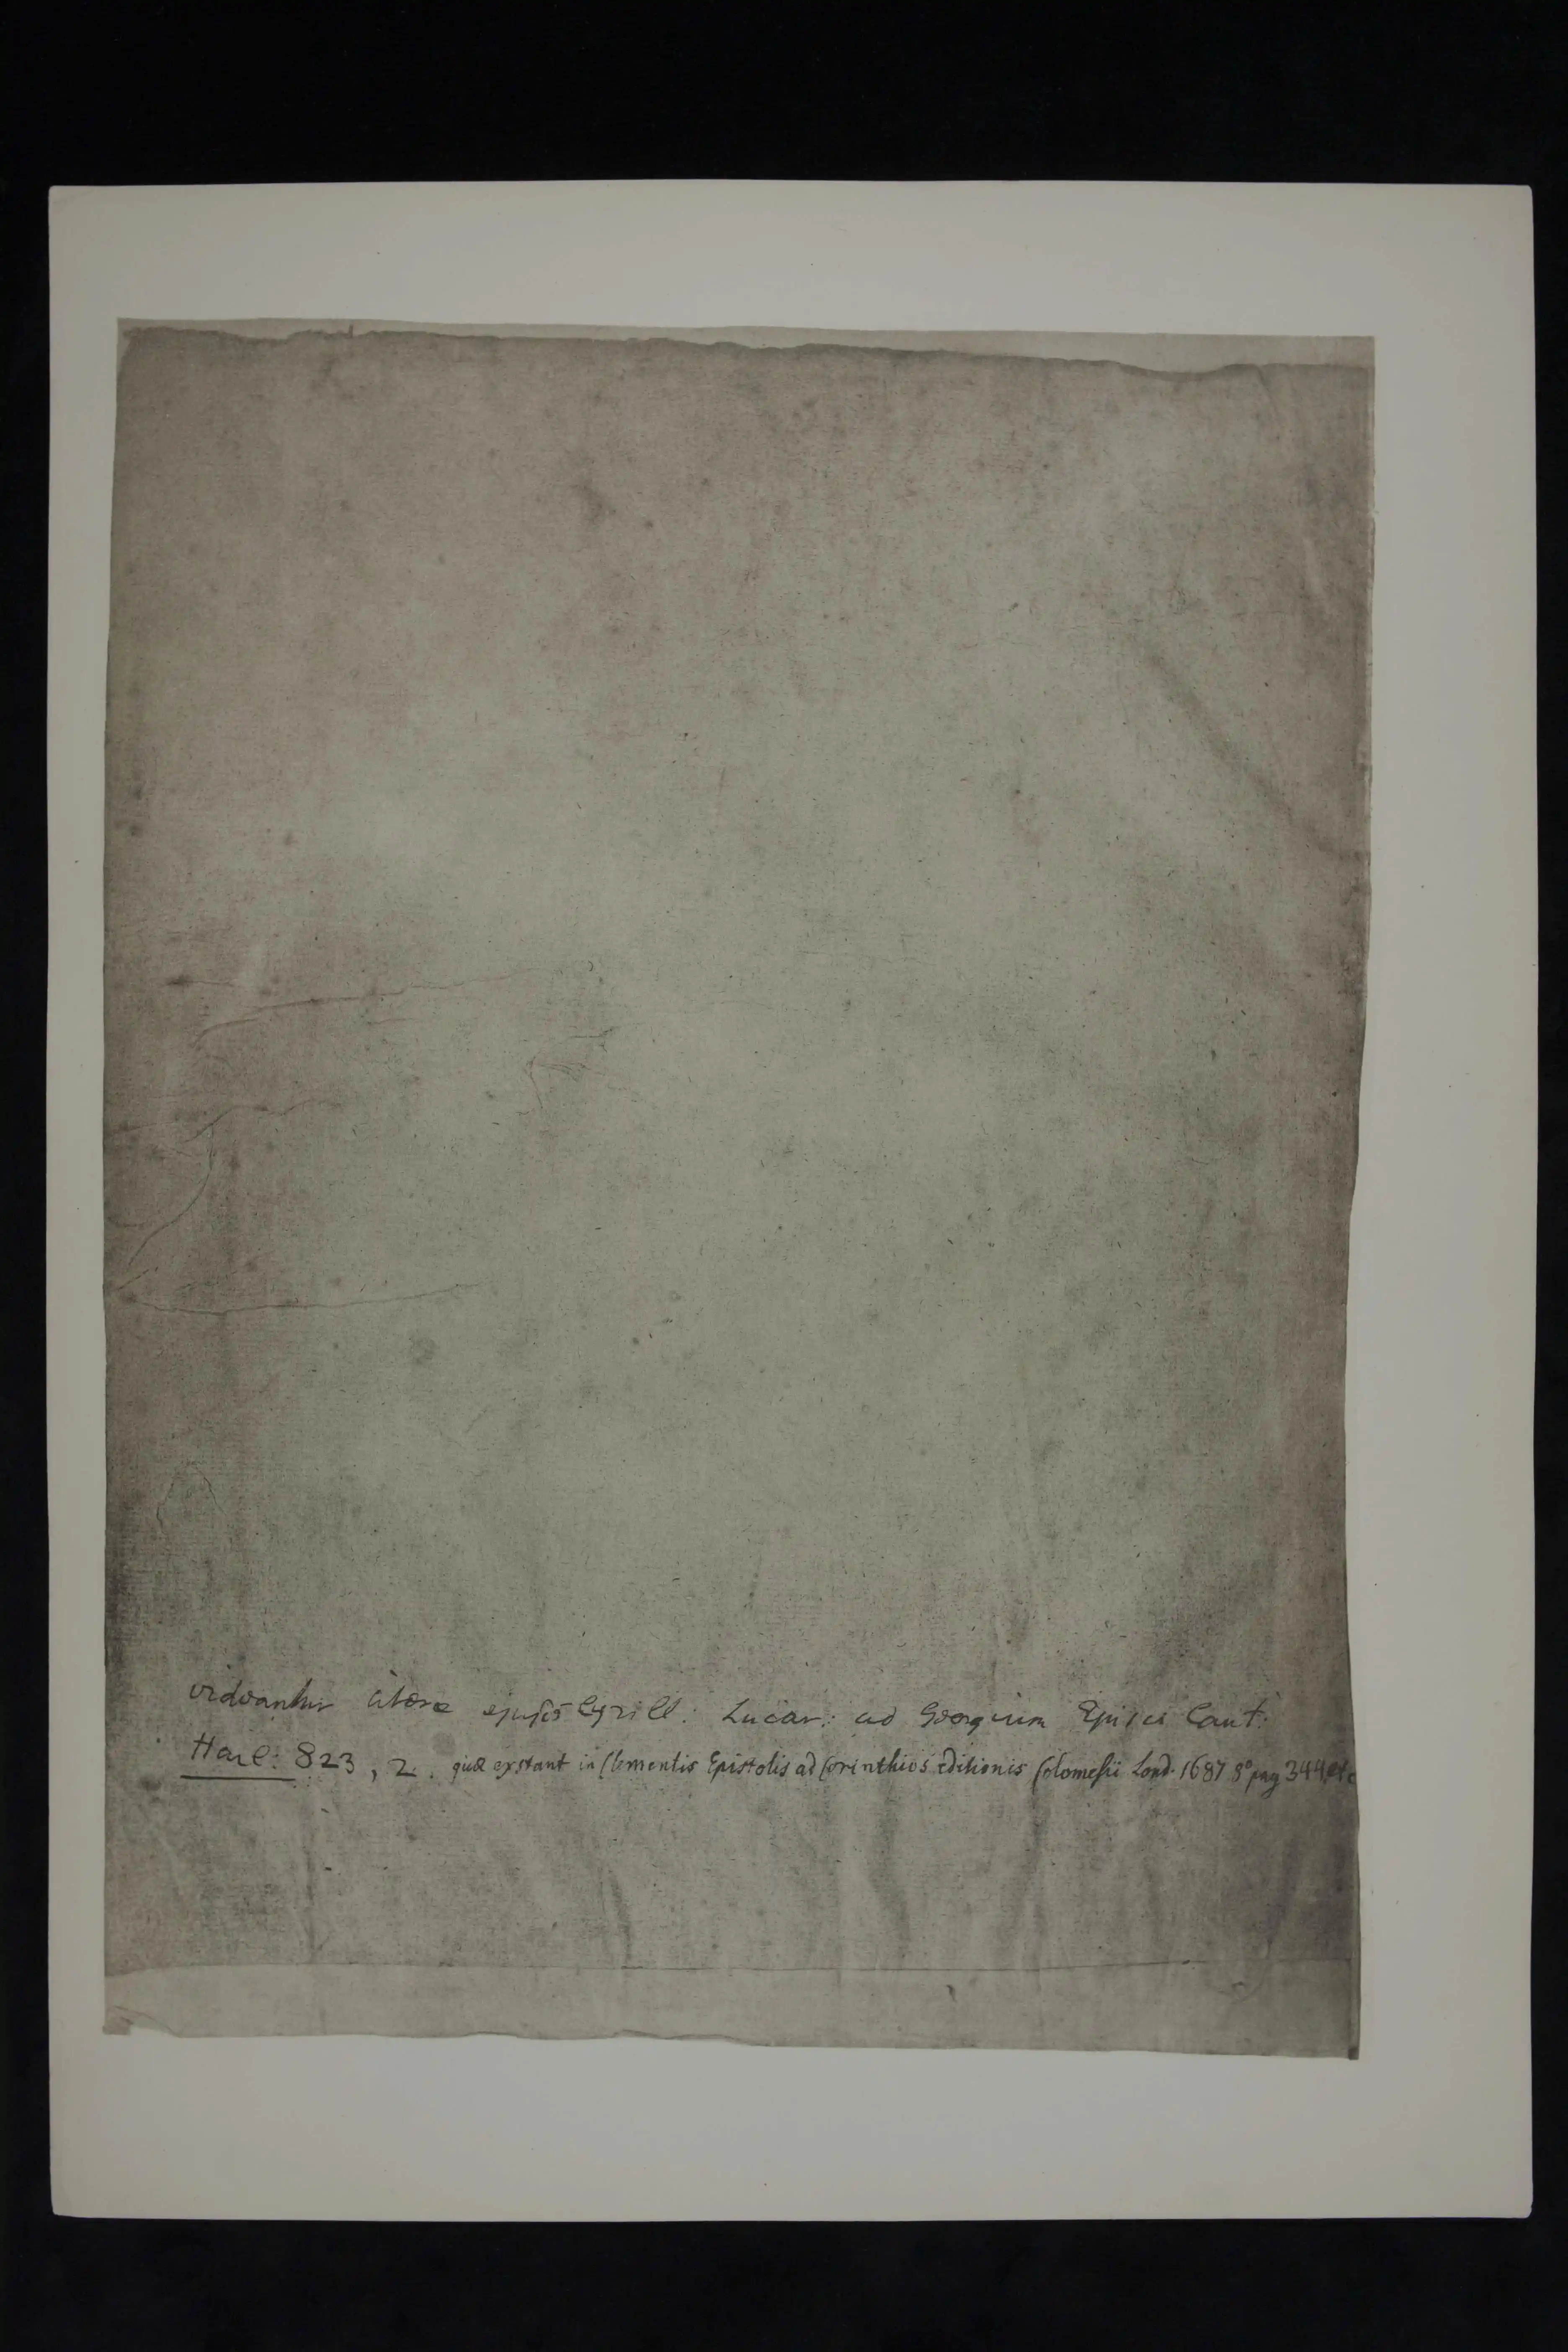 videantur literæ ejusdē Cyrill: Lucar: ad Georgium Episc Cant:
Harl: 823, 2. quæ exstant in Clementis Epistolis ad Corinthios editionis Colomesii Lond. 1687 8° pag 344 etc